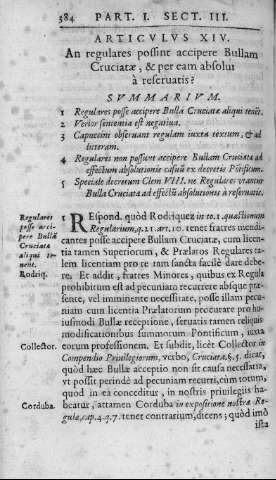 384 PART. I. SECT. III.
ARTICVLVS XIV.
An regulares possint accipere Bullam
Cruciatæ, & per eam absolui
à reseruatis?
SVMMARIVM.
1 Regulares posse accipere Bullã Cruciatæ aliqui tenēt.
2 Verior sententia est negatiua.
3 Capucini obseruant regulam iuxta textum, & ad
literam.
4 Regulares non possunt accipere Bullam Cruciata ad
effectum absolutionis casuū ex decretis Pontificum.
5 Speciale decretum Clem VIII. ne Regulares vtantur
Bulla Cruciata ad effectū absolutionis à reseruatis.
Regulares
posse acci-
pere Bullã
Cruciata
aliqui te-
nent.
Rodriq.
1 REspond. quòd Rodriquez in to.1. quæstionum
Regularium, q.21. art.10. tenet fratres mendi-
cantes posse accipere Bullam Cruciatæ, cum licen-
tia tamen Superiorum, & Prælatos Regulares ta-
lem licentiam pro re tam sancta facilè dare debe-
re. Et addit, fratres Minores, quibus ex Regula
prohibitum est ad pecuniam recurrere absque præ-
sente, vel imminente necessitate, posse illam pecu-
niam cum licentia Prælatorum procurare pro hu-
iusmodi Bullæ receptione, seruatis tamen reliquis
modificationibus summorum Pontificum, iuxta
Collector. eorum professionem. Et subdit, licèt Collector in
Compendio Priuilegiorum, verbo, Cruciata, §.5. dicat,
quòd hæc Bullæ acceptio non sit causa necessaria,
vt possit perinde ad pecuniam recurri, cùm totum,
quod in ea conceditur, in nostris priuilegiis ha-
Corduba. beatur, attamen Corduba in expositione nostræ Re-
gulæ, cap.4. q.7. tenet contrarium, dicens; quòd imò
ista